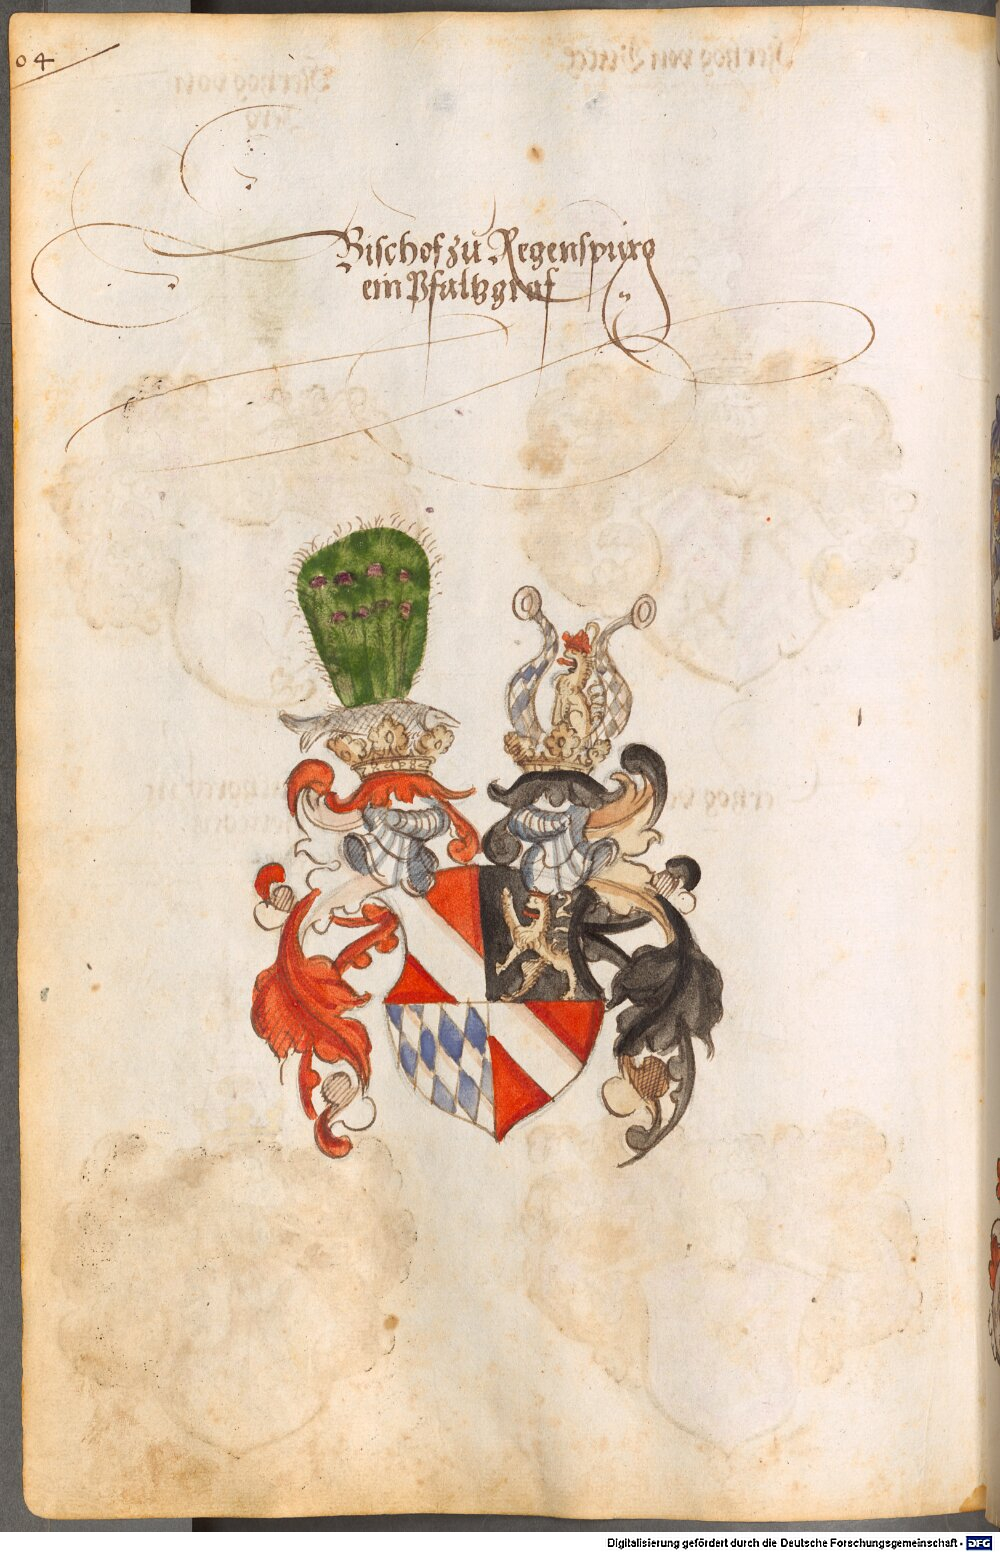 04
Bischof zu Regenspurg
ein Pfaltzgraf
Digitalisierung gefördert durch die Deutsche Forschungsgemeinschaft - DFG